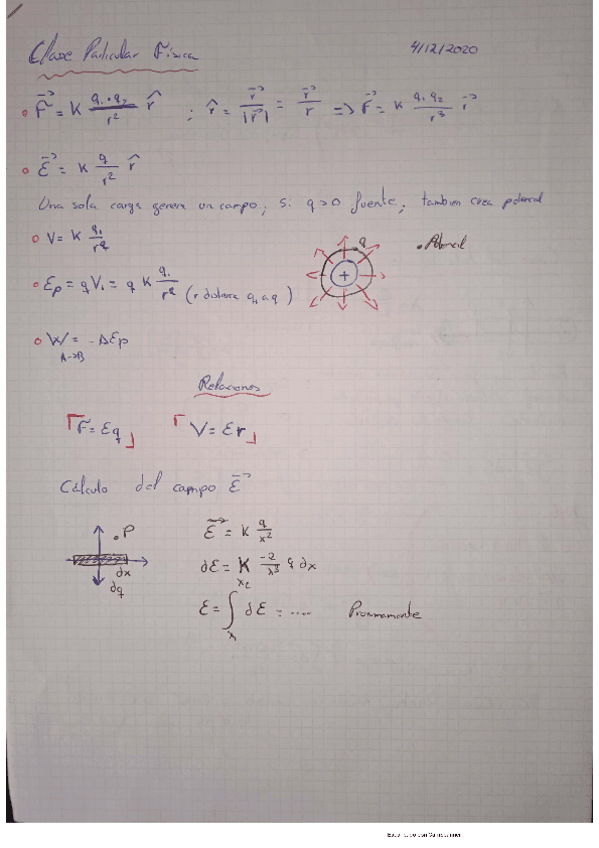 Clase Particular Física 4/12/2020
F⃗ = K q₁·q₂/r² r̂ ; r̂ = r⃗/|r⃗| = r⃗/r => F⃗ = K q₁ q₂/r³ r⃗
E⃗ = K q/r² r̂
Una sola carga genera un campo, si q>0 fuente; tambien crea potencial
V = K q₁/r²
q
+
• Potencial
Ep = q V₁ = q K q₁/r² (r distancia q₁ a q)
W = -ΔEp
A->B
Relaciones
F = Eq V = Er
Cálculo del campo E⃗
P
dx
dq
E⃗ = K q/x²
dE = K -2/x³ q dx
E = ∫ dE = ..... Proximamente